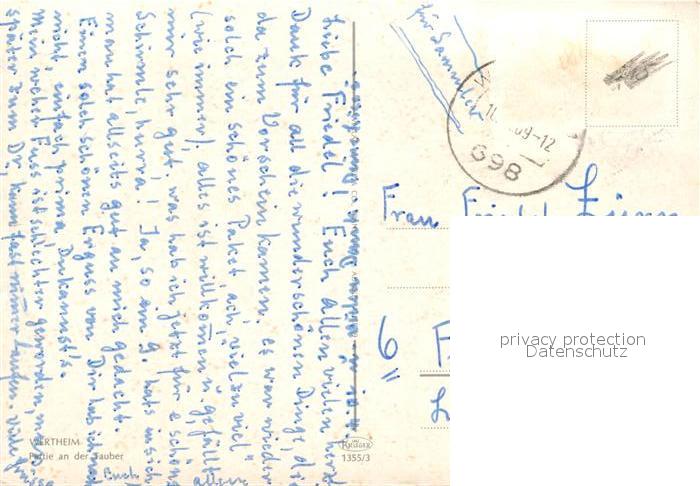 Liebe Friedel! Euch allen vielen herzl.
Dank für all die wunderschönen Dinge, die
da zum Vorschein kamen. es war wieder
solch ein schönes Paket ach, viel zu viel
(wie immer), alles ist willkommen u. gefällt
mir sehr gut, was hab ich jetzt für e schöns
Schirmle, hurra! Ja, so am 9. hats in sich
man hat allseits gut an mich gedacht.
Einen solch schönen Erguss von Dir hab ich
nicht, einfach prima Du kannst's.
Mein weher Fuss ist schlechter geworden, muss
später zum Dr., kann fast nimmer laufen. Viel
Euch allen
WERTHEIM
Partie an der Tauber
KRÜGER
1355/3
für Sammler
69-12
698
Frau Friedel Zürn
6
privacy protection
Datenschutz